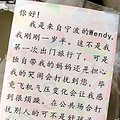 你好!
我是来自宁波的Wendy,
我刚刚一岁半。这不是我
第一次出门旅行了,可是
独自带我的妈妈还是担心
我的哭闹会打扰到您,毕
竟飞机气压变化会让我感
到很烦躁。在公共场合打
扰别人的可不是好孩子